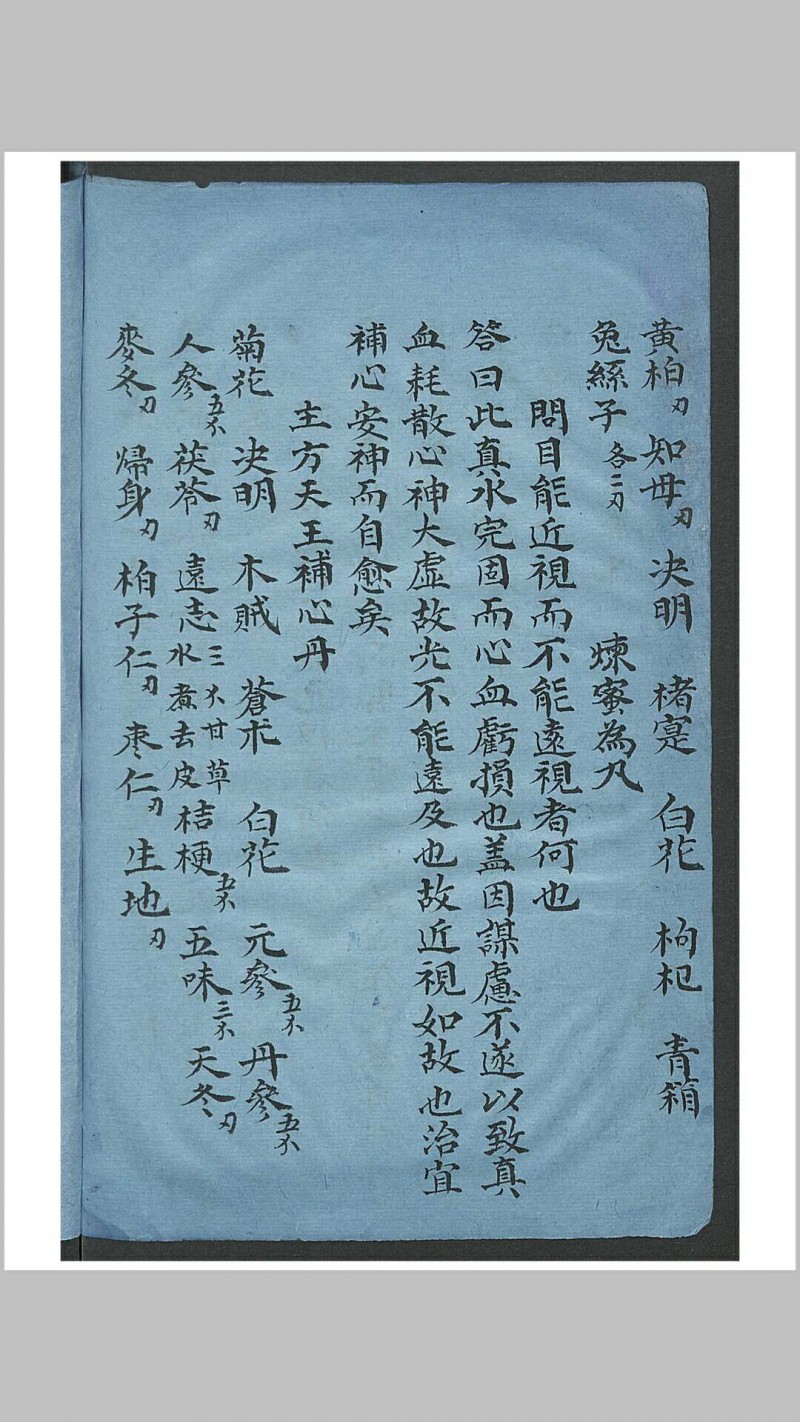 黃柏刄 知母刄 决明 楮寔 白花 枸杞 青箱
兔絲子各二刄 煉蜜為丸
問目能近視而不能遠視者何也
答曰此真水完固而心血虧損也蓋因謀慮不遂以致真
血耗散心神大虛故光不能遠及也故近視如故也治宜
補心安神而自愈矣
主方天王補心丹
菊花 决明 木賊 蒼朮 白花 元參五不 丹參五不
人參五不 茯苓刄 遠志三不甘草水煮去皮 桔梗五不 五味三不 天冬刄
麥冬刄 歸身刄 柏子仁刄 枣仁刄 生地刄